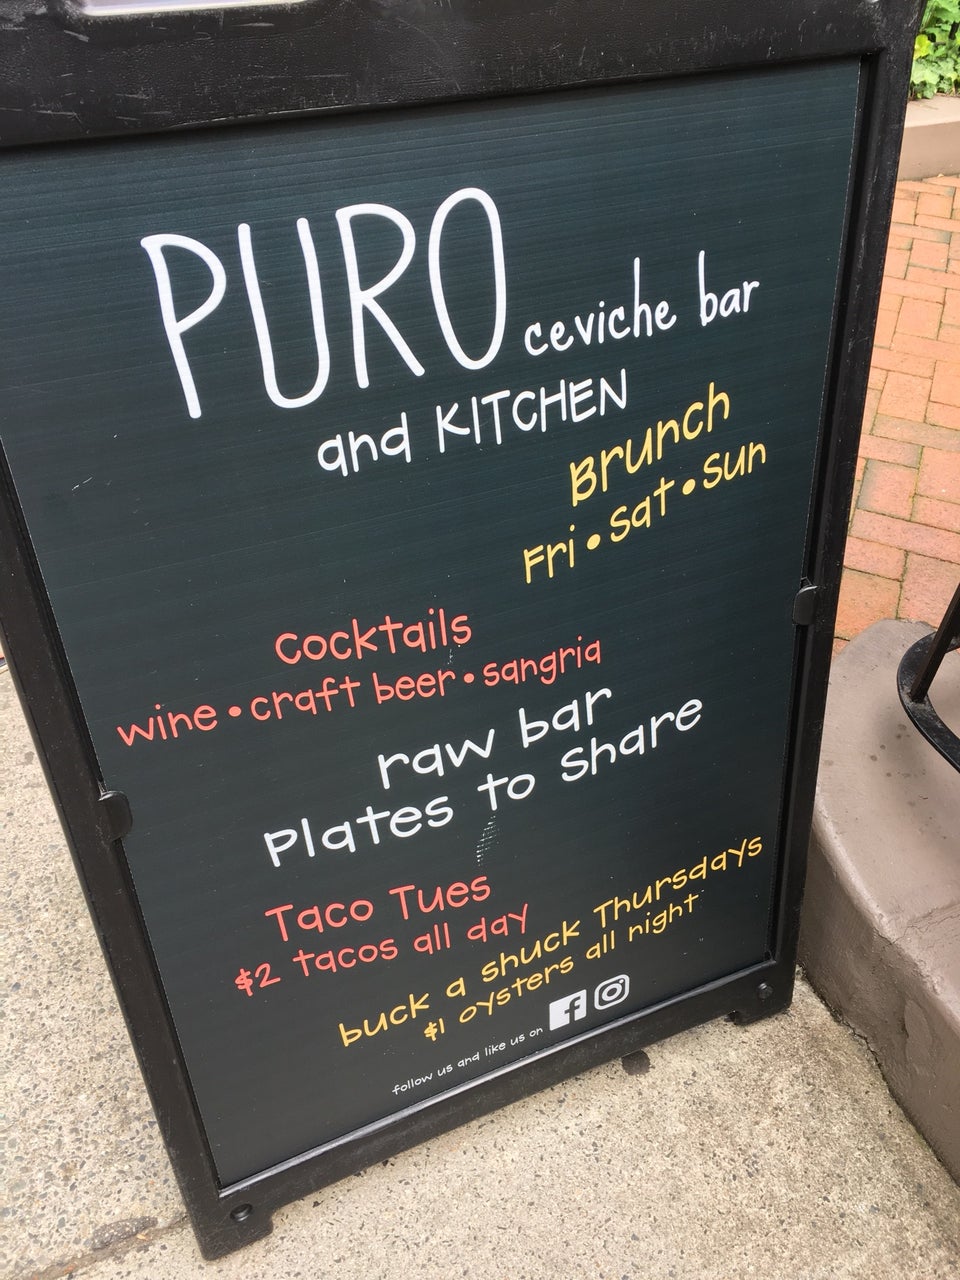 PURO ceviche bar
and KITCHEN
Brunch
Fri • Sat • Sun
Cocktails
wine • craft beer • sangria
raw bar
Plates to Share
Taco Tues
$2 tacos all day
buck a shuck Thursdays
$1 oysters all night
follow us and like us on